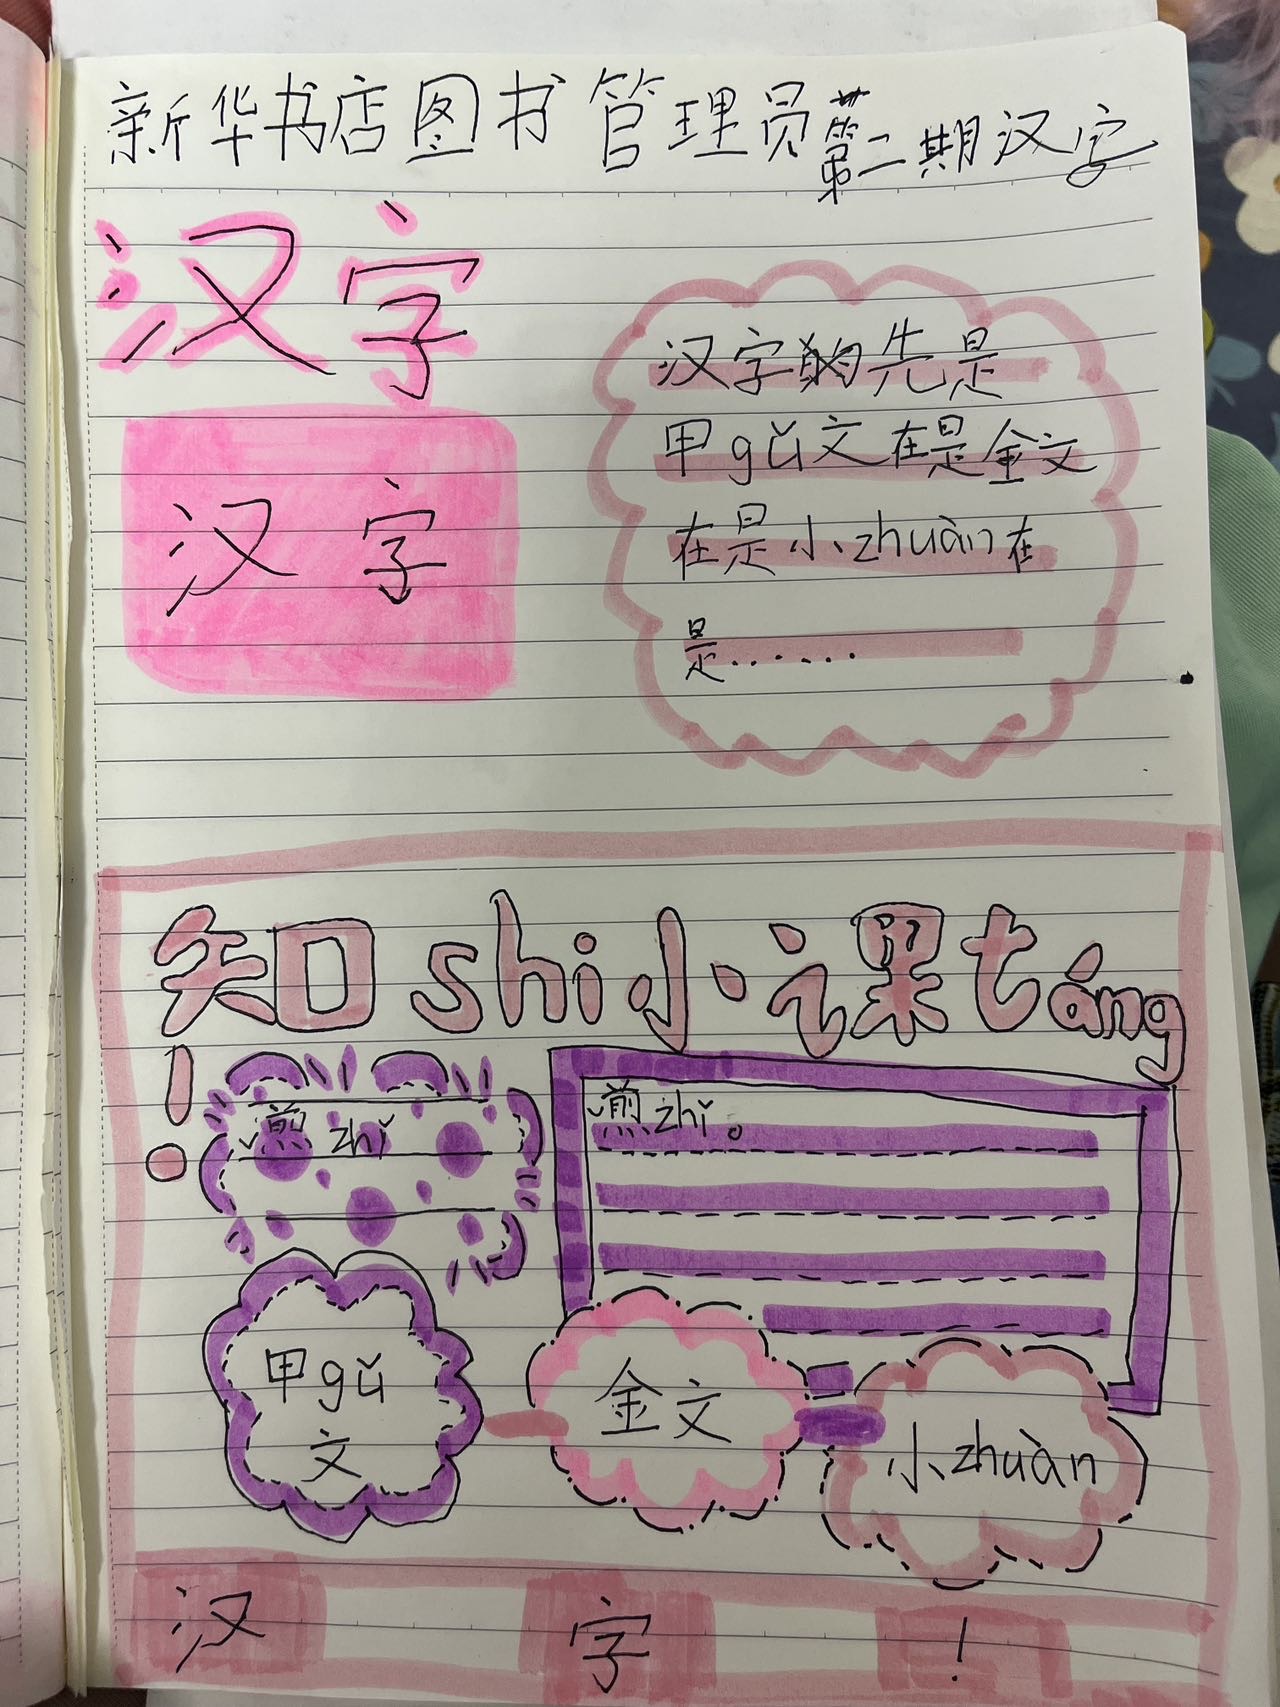 新华书店图书管理员第二期汉字
汉字
汉字
汉字的先是
甲gǔ文在是金文
在是小zhuàn在
是……
知shi小课táng
!
煎zhǐ
煎zhǐ。
甲gǔ
文
金文
小zhuàn
汉 字 !